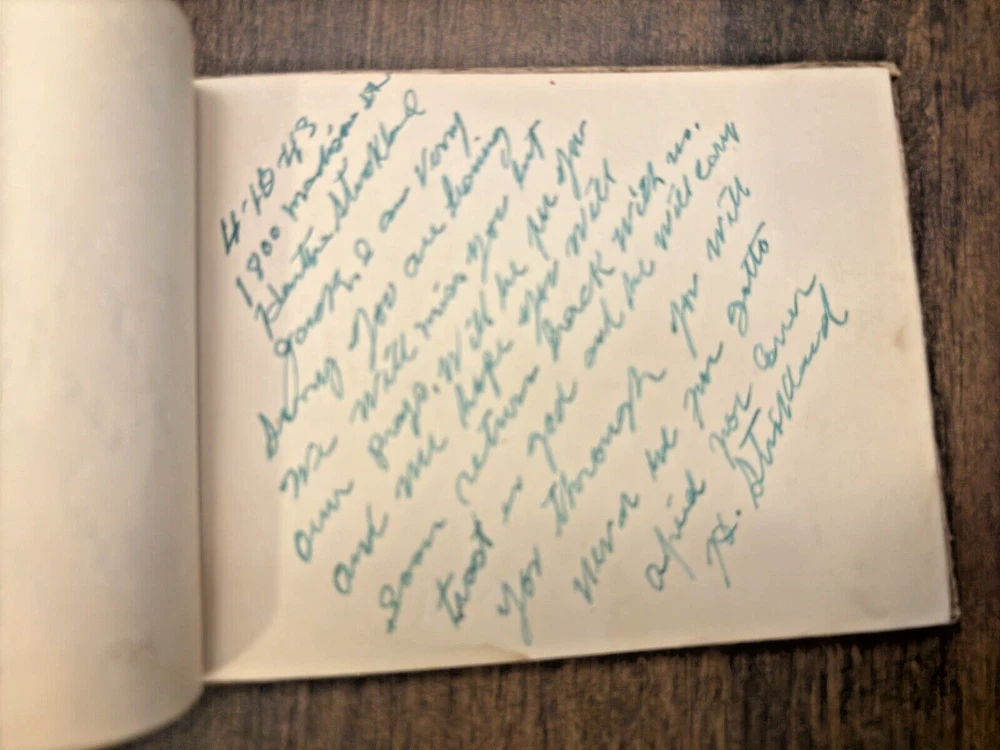 4-15-43
1800 madison st
Strickland
I am Verry
Sorry you are leaving
we will miss you but
our prays. Will be for you
and we hope you will
Soon return back with us.
trust in god and he will cary
you through for will
never be
afried for ever
H. Strickland